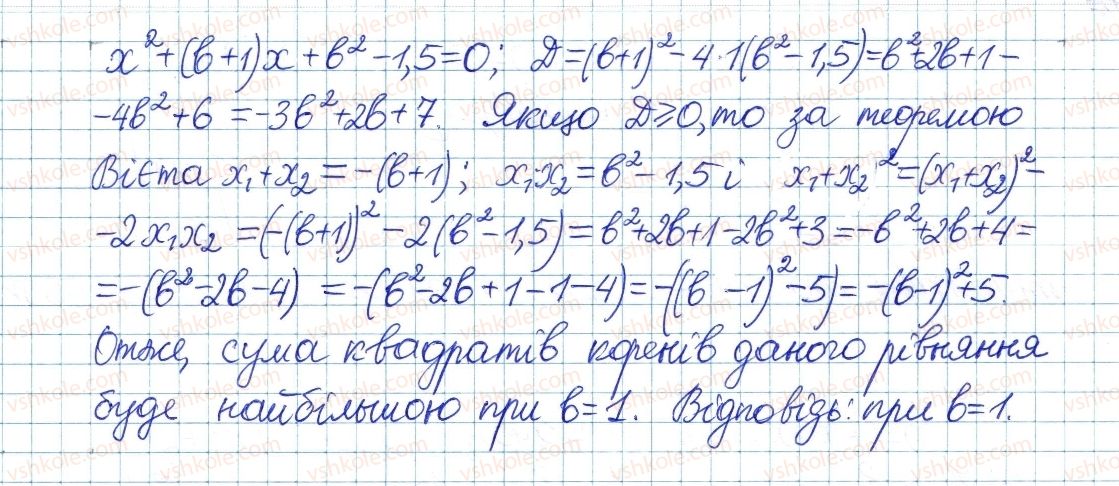 x² + (в+1)x + в² - 1,5 = 0; D = (в+1)² - 4·1(в² - 1,5) = в² + 2в + 1 -
- 4в² + 6 = -3в² + 2в + 7. Якщо D ≥ 0, то за теоремою
Вієта x₁ + x₂ = -(в+1); x₁·x₂ = в² - 1,5 і x₁ + x₂² = (x₁ + x₂)² -
- 2x₁x₂ = (-(в+1))² - 2(в² - 1,5) = в² + 2в + 1 - 2в² + 3 = -в² + 2в + 4 =
= -(в² - 2в - 4) = -(в² - 2в + 1 - 1 - 4) = -((в - 1)² - 5) = -(в-1)² + 5.
Отже, сума квадратів коренів даного рівняння
буде найбільшою при в = 1. Відповідь: при в = 1.